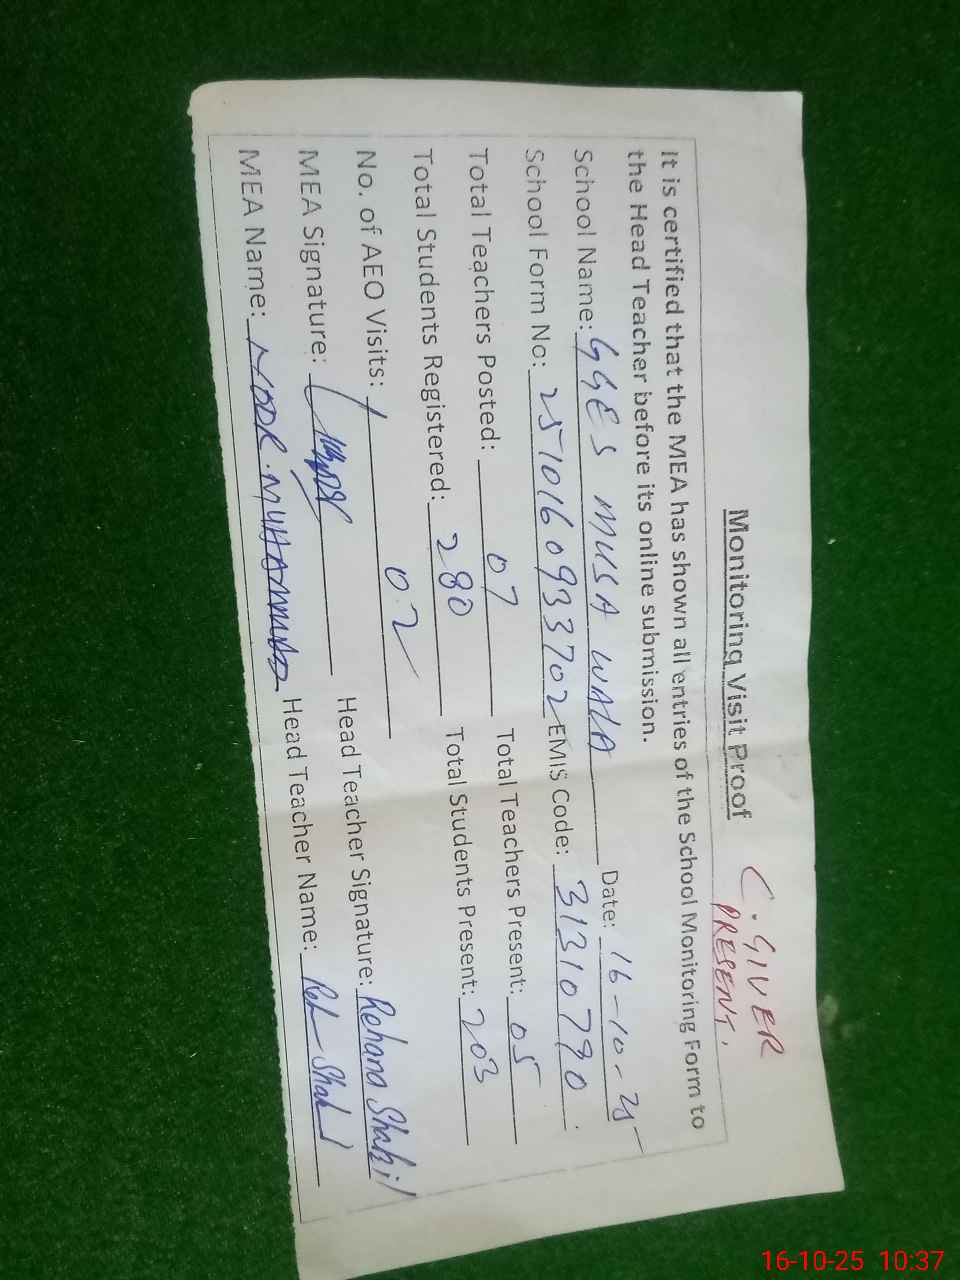 Monitoring Visit Proof
C. GIVER
PRESENT.
It is certified that the MEA has shown all entries of the School Monitoring Form to
the Head Teacher before its online submission.
School Name: GGES MUSA WALA Date: 16-10-25
School Form No: 251016093702 EMIS Code: 31310790
Total Teachers Posted: 07 Total Teachers Present: 05
Total Students Registered: 280 Total Students Present: 203
No. of AEO Visits: 02
MEA Signature: Head Teacher Signature: Rehana Shahil
MEA Name: NOOR MUHAMMAD Head Teacher Name:
16-10-25 10:37